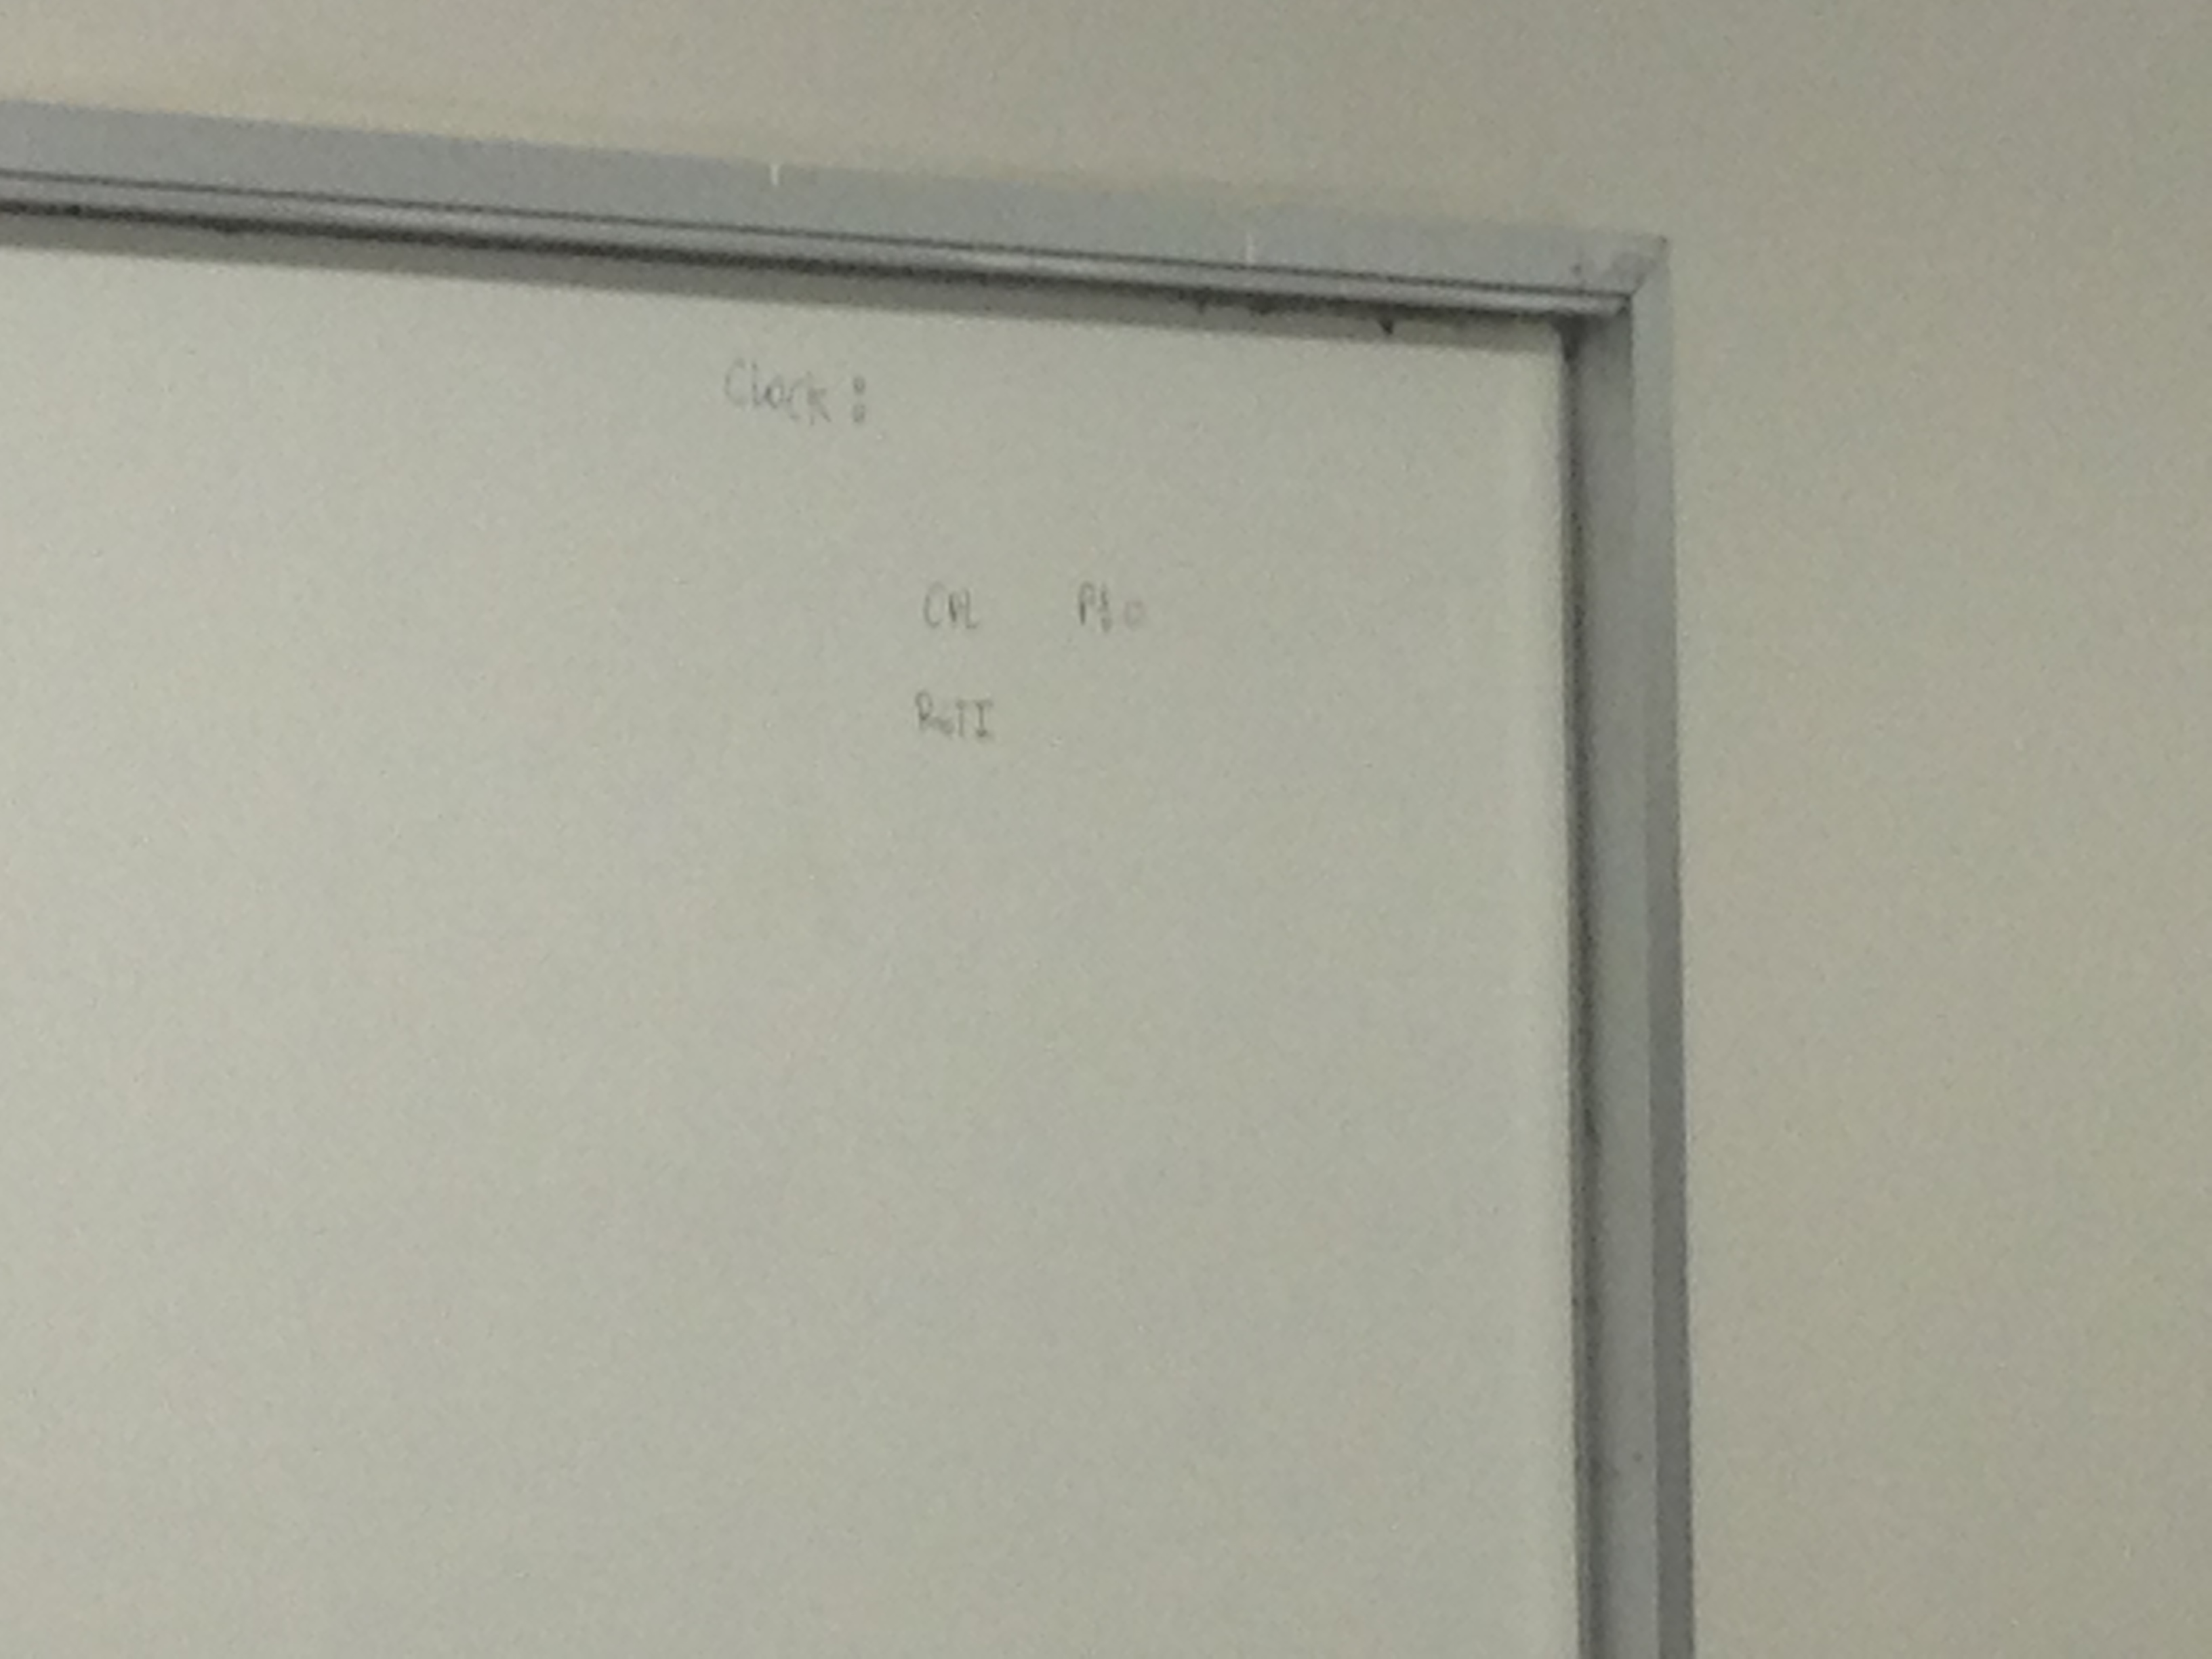 Clock :
CPL P1.0
RETI